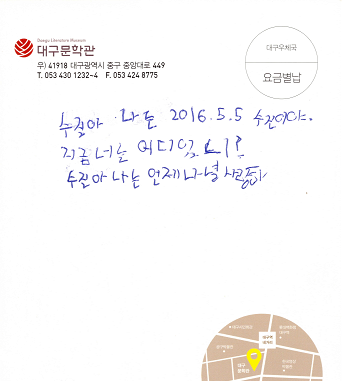 Daegu Literature Museum
대구문학관
우) 41918 대구광역시 중구 중앙대로 449
T. 053 430 1232~4 F. 053 424 8775
대구우체국
요금별납
수질아 나는 2016.5.5 수진이야.
지금 너는 어디있니?
수질아 나는 언제나 널
대구역
네거리
대구
문학관